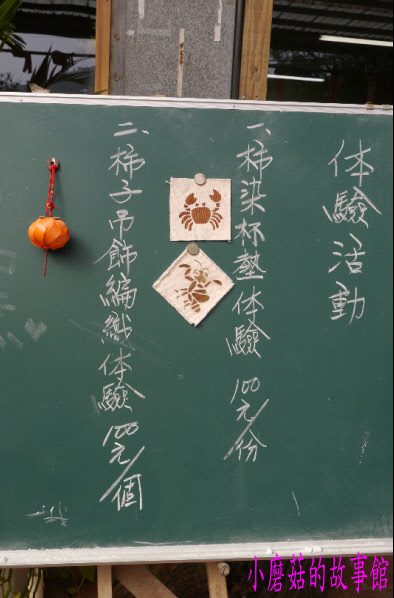 体驗活動
一、柿染杯墊体驗 100元/份
二、柿子吊飾編織体驗 100元/個
小蘑菇的故事館